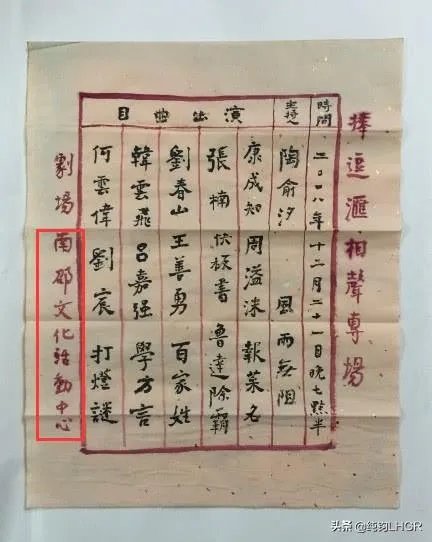 捧逗滙相聲專場
時間：二〇〇八年十二月二十一日晚七點半
主持人 陶俞汐 風雨無阻
演出曲目
康成知 周溢沫 報菜名
張楠 快板書 魯達除霸
劉春山 王善勇 百家姓
韓雲燕 呂嘉强 學方言
何雲偉 劉宸 打燈謎
劇場 南邵文化活動中心
头条 @纯钧LHGR